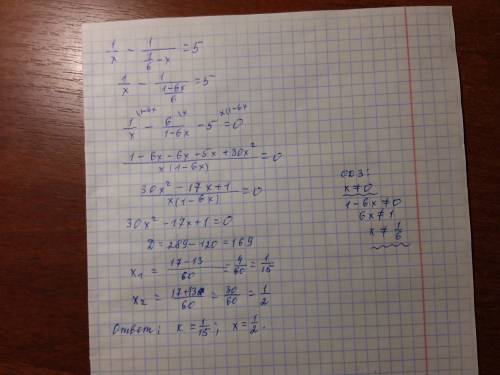 1/x - 1/(1/6 - x) = 5
1/x - 1/((1-6x)/6) = 5
1/x \1-6x - 6/(1-6x) \x - 5 x(1-6x = 0
(1 - 6x - 6x + 5x + 30x²)/(x(1-6x)) = 0
(30x² - 17x + 1)/(x(1-6x)) = 0
30x² - 17x + 1 = 0
D = 289 - 120 = 169
x₁ = (17-13)/60 = 4/60 = 1/15
x₂ = (17+13)/60 = 30/60 = 1/2
Ответ: x = 1/15; x = 1/2.
ОДЗ:
x ≠ 0
1 - 6x ≠ 0
6x ≠ 1
x ≠ 1/6